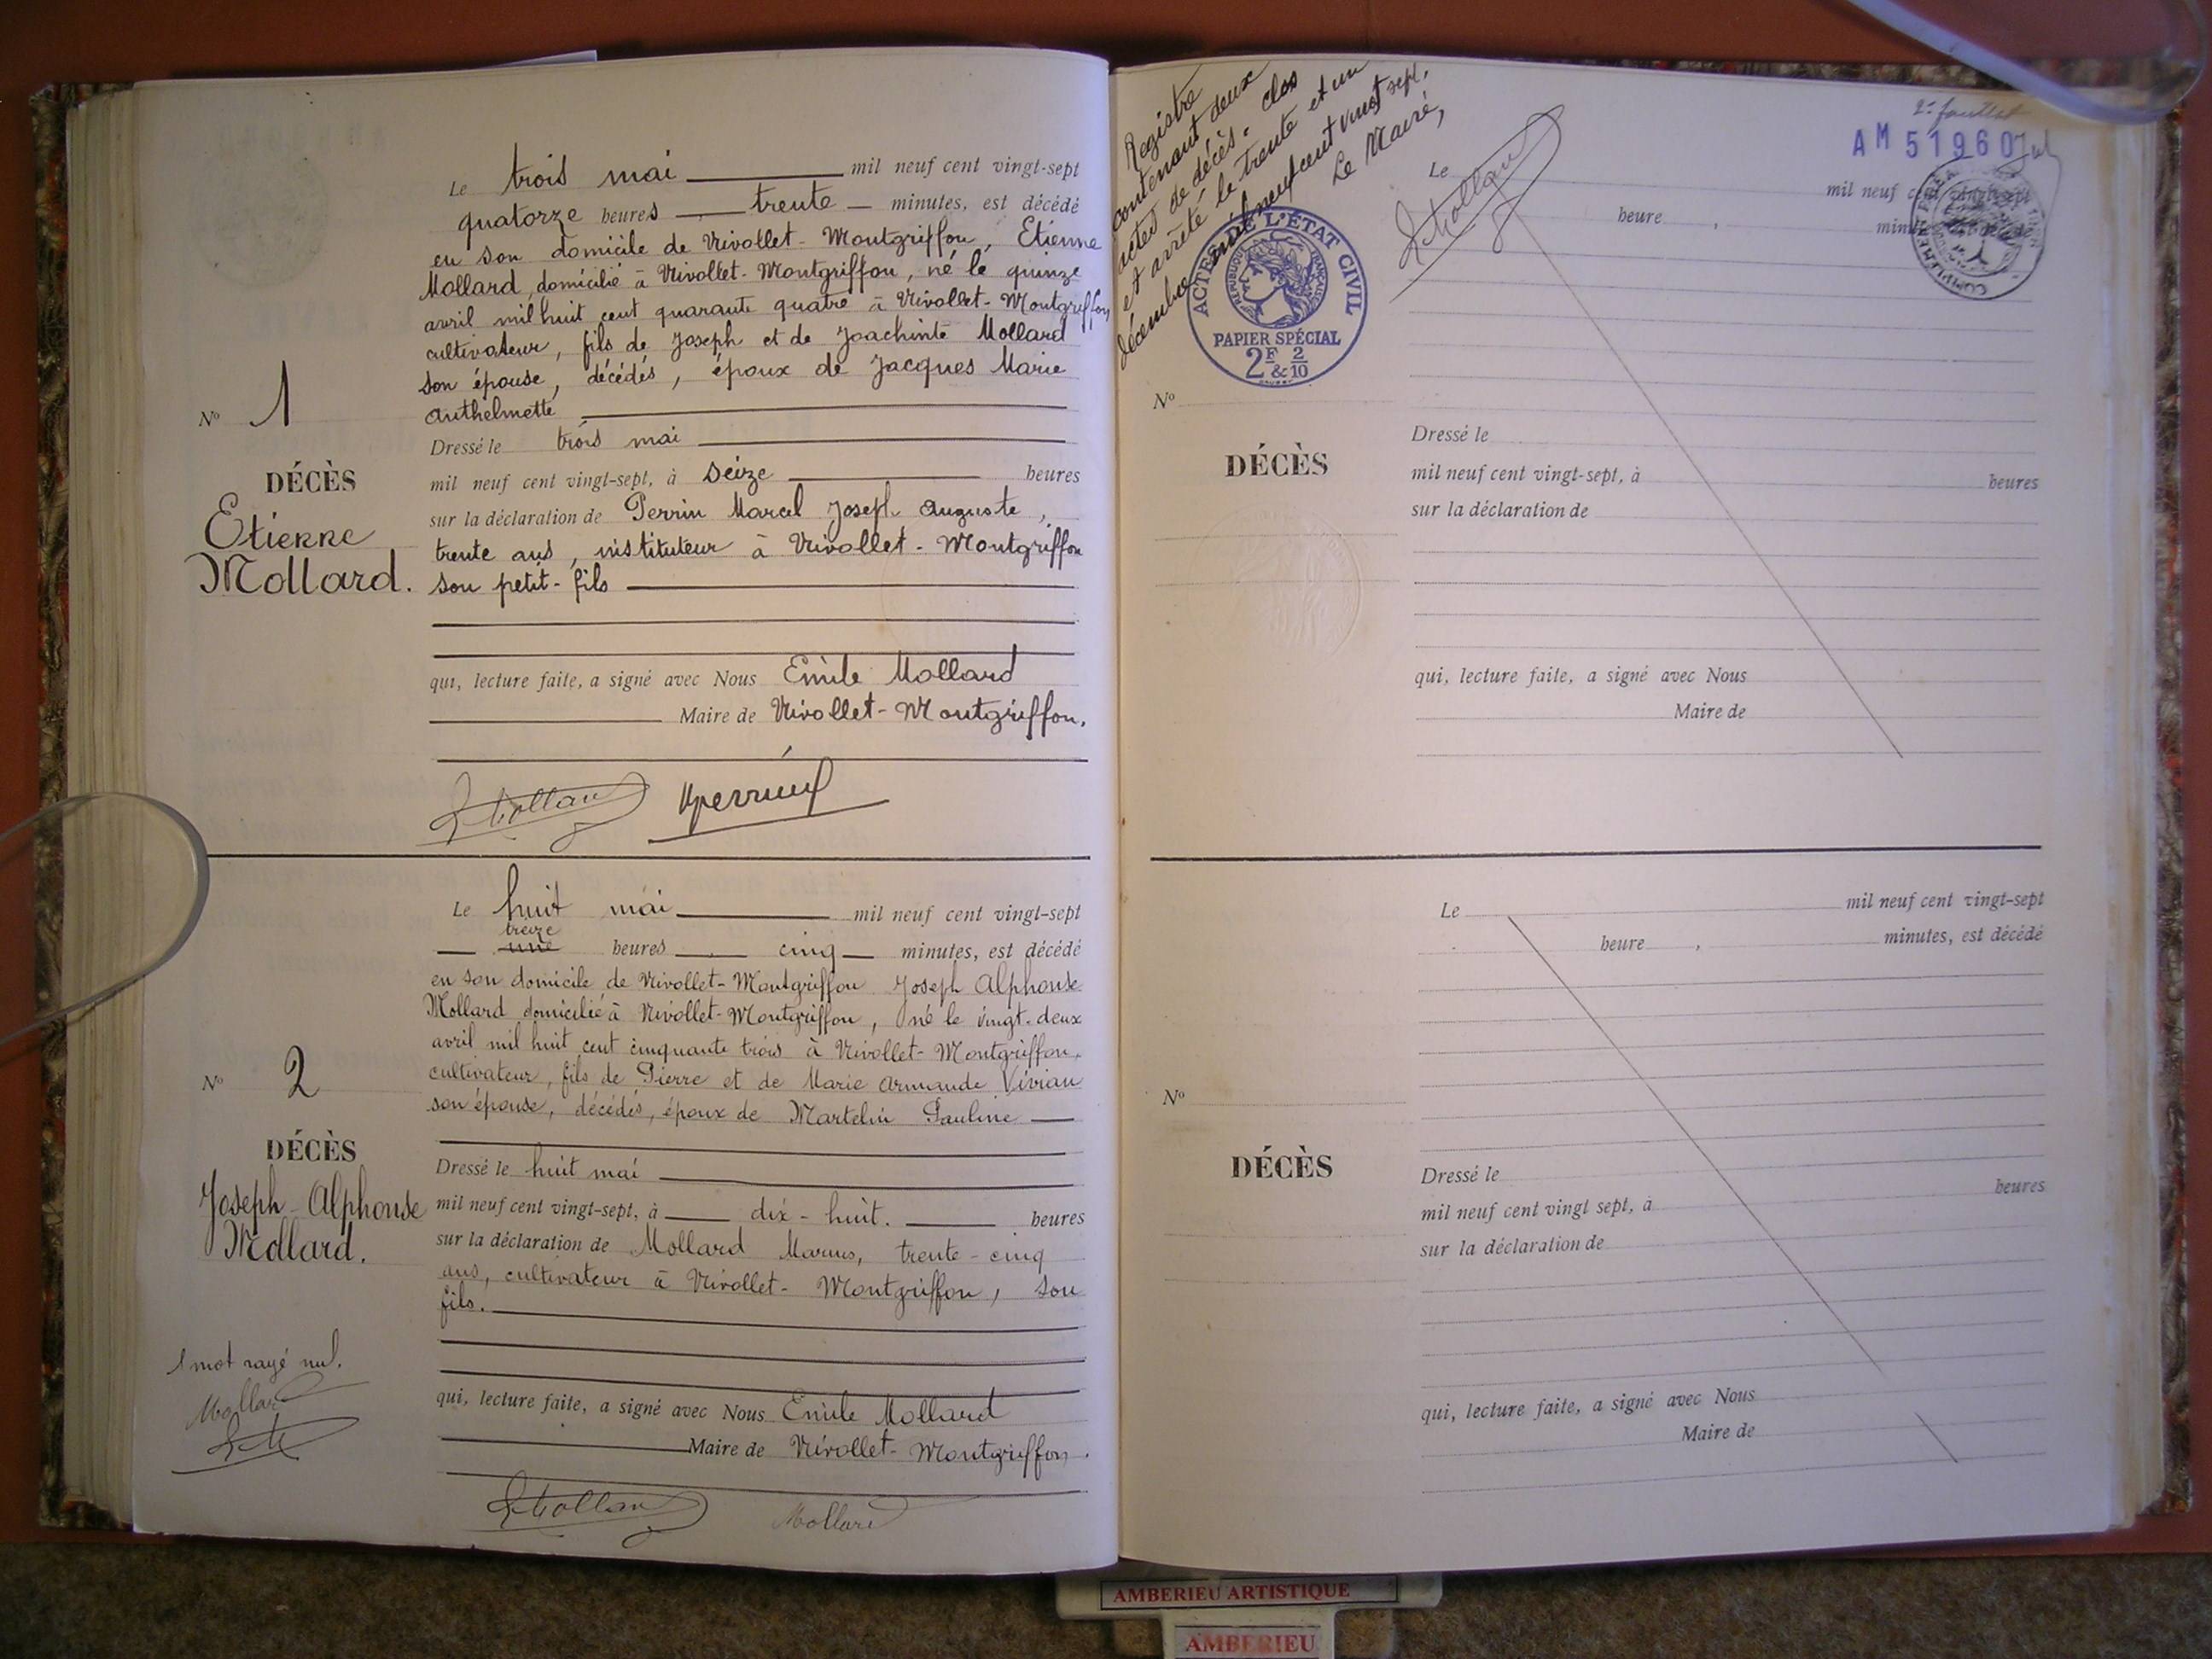 Le trois mai mil neuf cent vingt-sept
quatorze heures trente minutes, est décédé
en son domicile de Nivollet-Montgriffon, Etienne
Mollard, domicilié à Nivollet-Montgriffon, né le quinze
avril mil huit cent quarante quatre à Nivollet-Montgriffon,
cultivateur, fils de Joseph et de Joachinte Mollard
son épouse, décédés, époux de Jacques Marie
Anthelmette
Nº 1
DÉCÈS
Etienne
Mollard.
Dressé le trois mai
mil neuf cent vingt-sept, à seize heures
sur la déclaration de Perrin Marcel Joseph Auguste,
trente ans, instituteur à Nivollet-Montgriffon
son petit-fils
qui, lecture faite, a signé avec Nous Emile Mollard
Maire de Nivollet-Montgriffon.
EMollard Perrin
Le huit mai mil neuf cent vingt-sept
treize
une heures cinq minutes, est décédé
en son domicile de Nivollet-Montgriffon Joseph Alphonse
Mollard domicilié à Nivollet-Montgriffon, né le vingt-deux
avril mil huit cent cinquante trois à Nivollet-Montgriffon,
cultivateur, fils de Pierre et de Marie Armande Vivian
son épouse, décédés, époux de Martelin Pauline
Nº 2
DÉCÈS
Joseph-Alphonse
Mollard.
Dressé le huit mai
mil neuf cent vingt-sept, à dix-huit. heures
sur la déclaration de Mollard Marius, trente-cinq
ans, cultivateur à Nivollet-Montgriffon, son
fils.
1 mot rayé nul.
Mollard
qui, lecture faite, a signé avec Nous Emile Mollard
Maire de Nivollet-Montgriffon.
EMollard Mollard
Registre
contenant deux
actes de décès. clos
et arrêté le trente et un
décembre mil neuf cent vingt sept.
Le Maire,
EMollard
2e feuillet
AM 51960
ACTE DE L'ÉTAT CIVIL
RÉPUBLIQUE FRANÇAISE
PAPIER SPÉCIAL
2F & 2/10
Le mil neuf cent vingt-sept
heure , minutes, est décédé
Nº
DÉCÈS
Dressé le
mil neuf cent vingt-sept, à heures
sur la déclaration de
qui, lecture faite, a signé avec Nous
Maire de
Le mil neuf cent vingt-sept
heure , minutes, est décédé
Nº
DÉCÈS
Dressé le
mil neuf cent vingt sept, à heures
sur la déclaration de
qui, lecture faite, a signé avec Nous
Maire de
AMBERIEU ARTISTIQUE
AMBERIEU